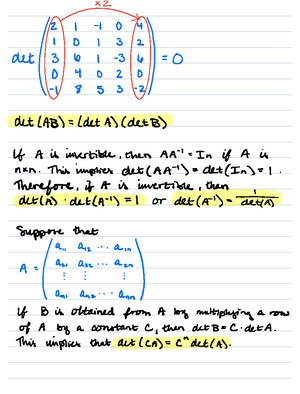 x2
det ( 2 1 -1 0 4
1 0 1 3 2
3 6 1 -3 6
0 4 0 2 0
-1 8 5 3 -2 ) = 0
det(AB) = (det A)(det B)
If A is invertible, then AA⁻¹ = In if A is
nxn. This implies det(AA⁻¹) = det(In) = 1.
Therefore, if A is invertible, then
det(A) · det(A⁻¹) = 1 or det(A⁻¹) = 1/det(A)
Suppose that
A = ( a₁₁ a₁₂ ... a₁ₙ
a₂₁ a₂₂ ... a₂ₙ
⋮ ⋮ ⋮
aₙ₁ aₙ₂ ... aₙₙ )
If B is obtained from A by multiplying a row
of A by a constant C, then det B = C · det A.
This implies that det(CA) = Cⁿ det(A).